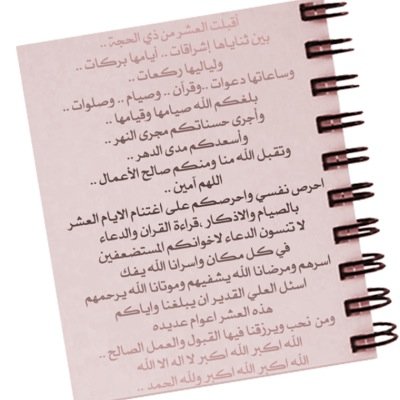 أقبلت العشر من ذي الحجة ..
بين ثناياها إشراقات .. أيامها بركات ..
ولياليها ركعات ..
وساعاتها دعوات ..وقرآن .. وصيام .. وصلوات ..
بلغكم الله صيامها وقيامها ..
وأجرى حسناتكم مجرى النهر ..
وأسعدكم مدى الدهر ..
وتقبل الله منا ومنكم صالح الأعمال ..
اللهم آمين ..
احرص نفسي واحرصكم على اغتنام الايام العشر
بالصيام والاذكار ،قراءة القران والدعاء
لا تنسون الدعاء لاخوانكم المستضعفين
في كل مكان واسرانا الله يفك
اسرهم ومرضانا الله يشفيهم وموتانا الله يرحمهم
اسئل العلي القدير ان يبلغنا واياكم
هذه العشر اعوام عديده
ومن نحب ويرزقنا فيها القبول والعمل الصالح ..
الله اكبر الله اكبر لا اله الا الله
الله اكبر الله اكبر ولله الحمد ..